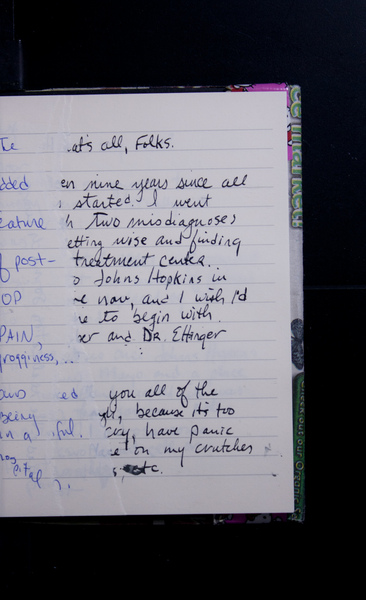 at's all, Folks.
en nine years since all
started. I went
h two misdiagnoses
etting wise and finding
treatment center.
o Johns Hopkins in
e now, and I wish I'd
e to begin with.
er and Dr. Ettinger
ed you all of the
because it's too
cry, have panic
e on my crutches
s, etc.
dded
eature
f post-
OP
PAIN,
grogginess, ..
being
in a